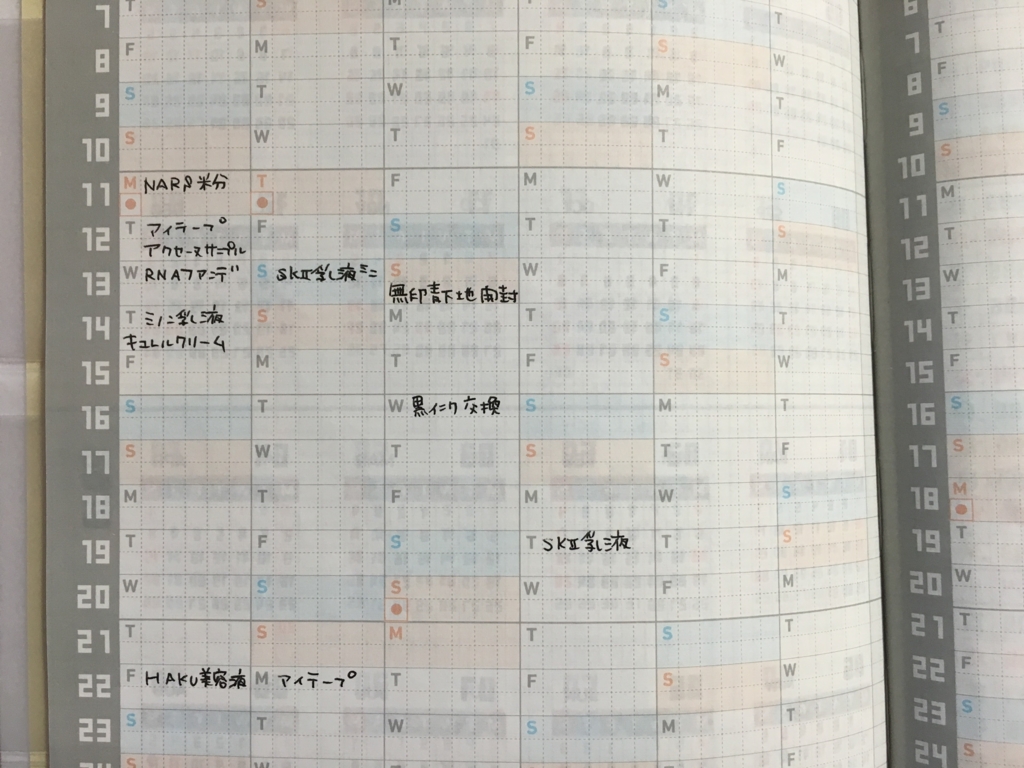 7 T S M T S T 6
8 F M T F S W T 7
9 S T W S M T F 8
10 S W T S T F S 9
11 M NARS 粉 T F M W S S 10
12 T アイテープ F S T T S M 11
アクセーヌサンプル
13 W RNAファンデ S SKⅡ乳液ミニ S W F M T 12
無印青下地開封
14 T ミノン乳液 S M T S T W 13
キュレルクリーム
15 F M T F S W T 14
16 S T W 黒インク交換 S M T F 15
17 S W T S T F S 16
18 M T F M W S S 17
19 T F S T SKⅡ乳液 T S M 18
20 W S S W F M T 19
21 T S M T S T W 20
22 F HAKU美容液 M アイテープ T F S W T 21
23 S T W S M T F 22
S W T S T F S 23
24